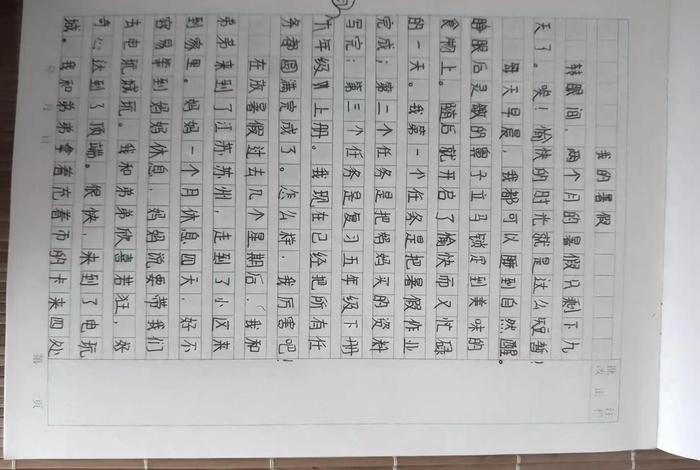 我的暑假
转眼间，两个月的暑假只剩下九
天了。唉！愉快的时光就是过么短暂！
每天早晨，我都可以睡到自然醒。
睁眼后是敏的鼻子立马锁定到美味的
食物上。随后就开启了愉快而又忙碌
的一天。我第一个任务是把暑假作业
完成；第二个任务是把妈妈买的资料
写完；第三个任务是复习五年级下册
六年级上册。我现在已经把所有任
务都圆满完成了。怎么样，我厉害吧！
在放暑假过去几个星期后，我和
弟弟来到了江苏苏州，走到了小区来
到家里。妈妈一个月休息四天，好不
容易等到妈妈休息，妈妈说要带我们
去电玩城玩。我和弟弟欣喜若狂，好
奇心达到了顶端。很快，来到了电玩
城。我和弟弟拿着充着币的卡来四处
年 月 日 第 页